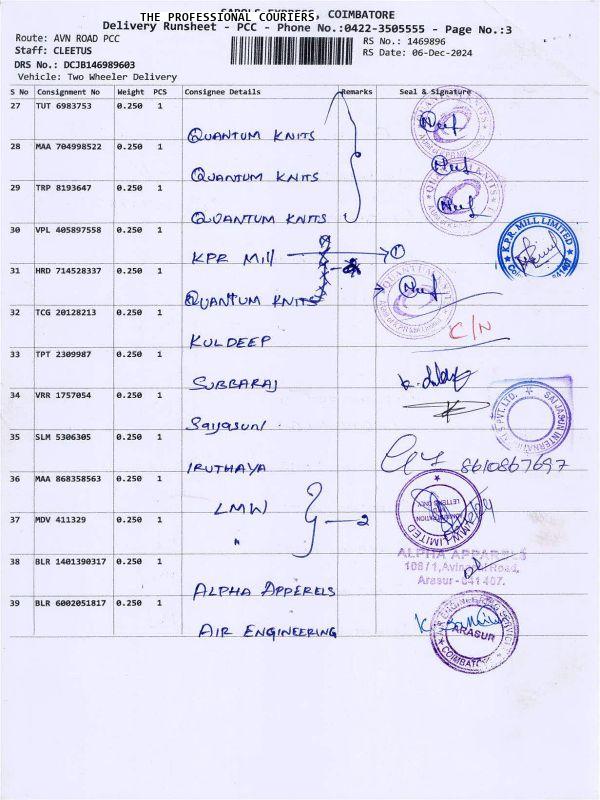 THE PROFESSIONAL COURIERS, COIMBATORE
Delivery Runsheet - PCC - Phone No.:0422-3505555 - Page No.:3
Route: AVN ROAD PCC
RS No.: 1469896
Staff: CLEETUS
RS Date: 06-Dec-2024
DRS No.: DCJB146989603
Vehicle: Two Wheeler Delivery
S No Consignment No Weight PCS Consignee Details Remarks Seal & Signature
27 TUT 6983753 0.250 1
QUANTUM KNITS
28 MAA 704998522 0.250 1
QUANTUM KNITS
29 TRP 8193647 0.250 1
QUANTUM KNITS
30 VPL 405897558 0.250 1
K.P.R. MILL LIMITED
KPR Mill 1
31 HRD 714528337 0.250 1
QUANTUM KNITS
32 TCG 20128213 0.250 1
C/N
KULDEEP
33 TPT 2309987 0.250 1
SUBBARAJ
34 VRR 1757054 0.250 1
Saijasun
35 SLM 5306305 0.250 1
IRUTHAYA 8610867697
36 MAA 868358563 0.250 1
LMW
37 MDV 411329 0.250 1
2
LMW LIMITED
"
38 BLR 1401390317 0.250 1
ALPHA APPARELS
108/1, Road,
Arasur - 641 407.
ALPHA APPERELS
39 BLR 6002051817 0.250 1
AIR ENGINEERING
ARASUR